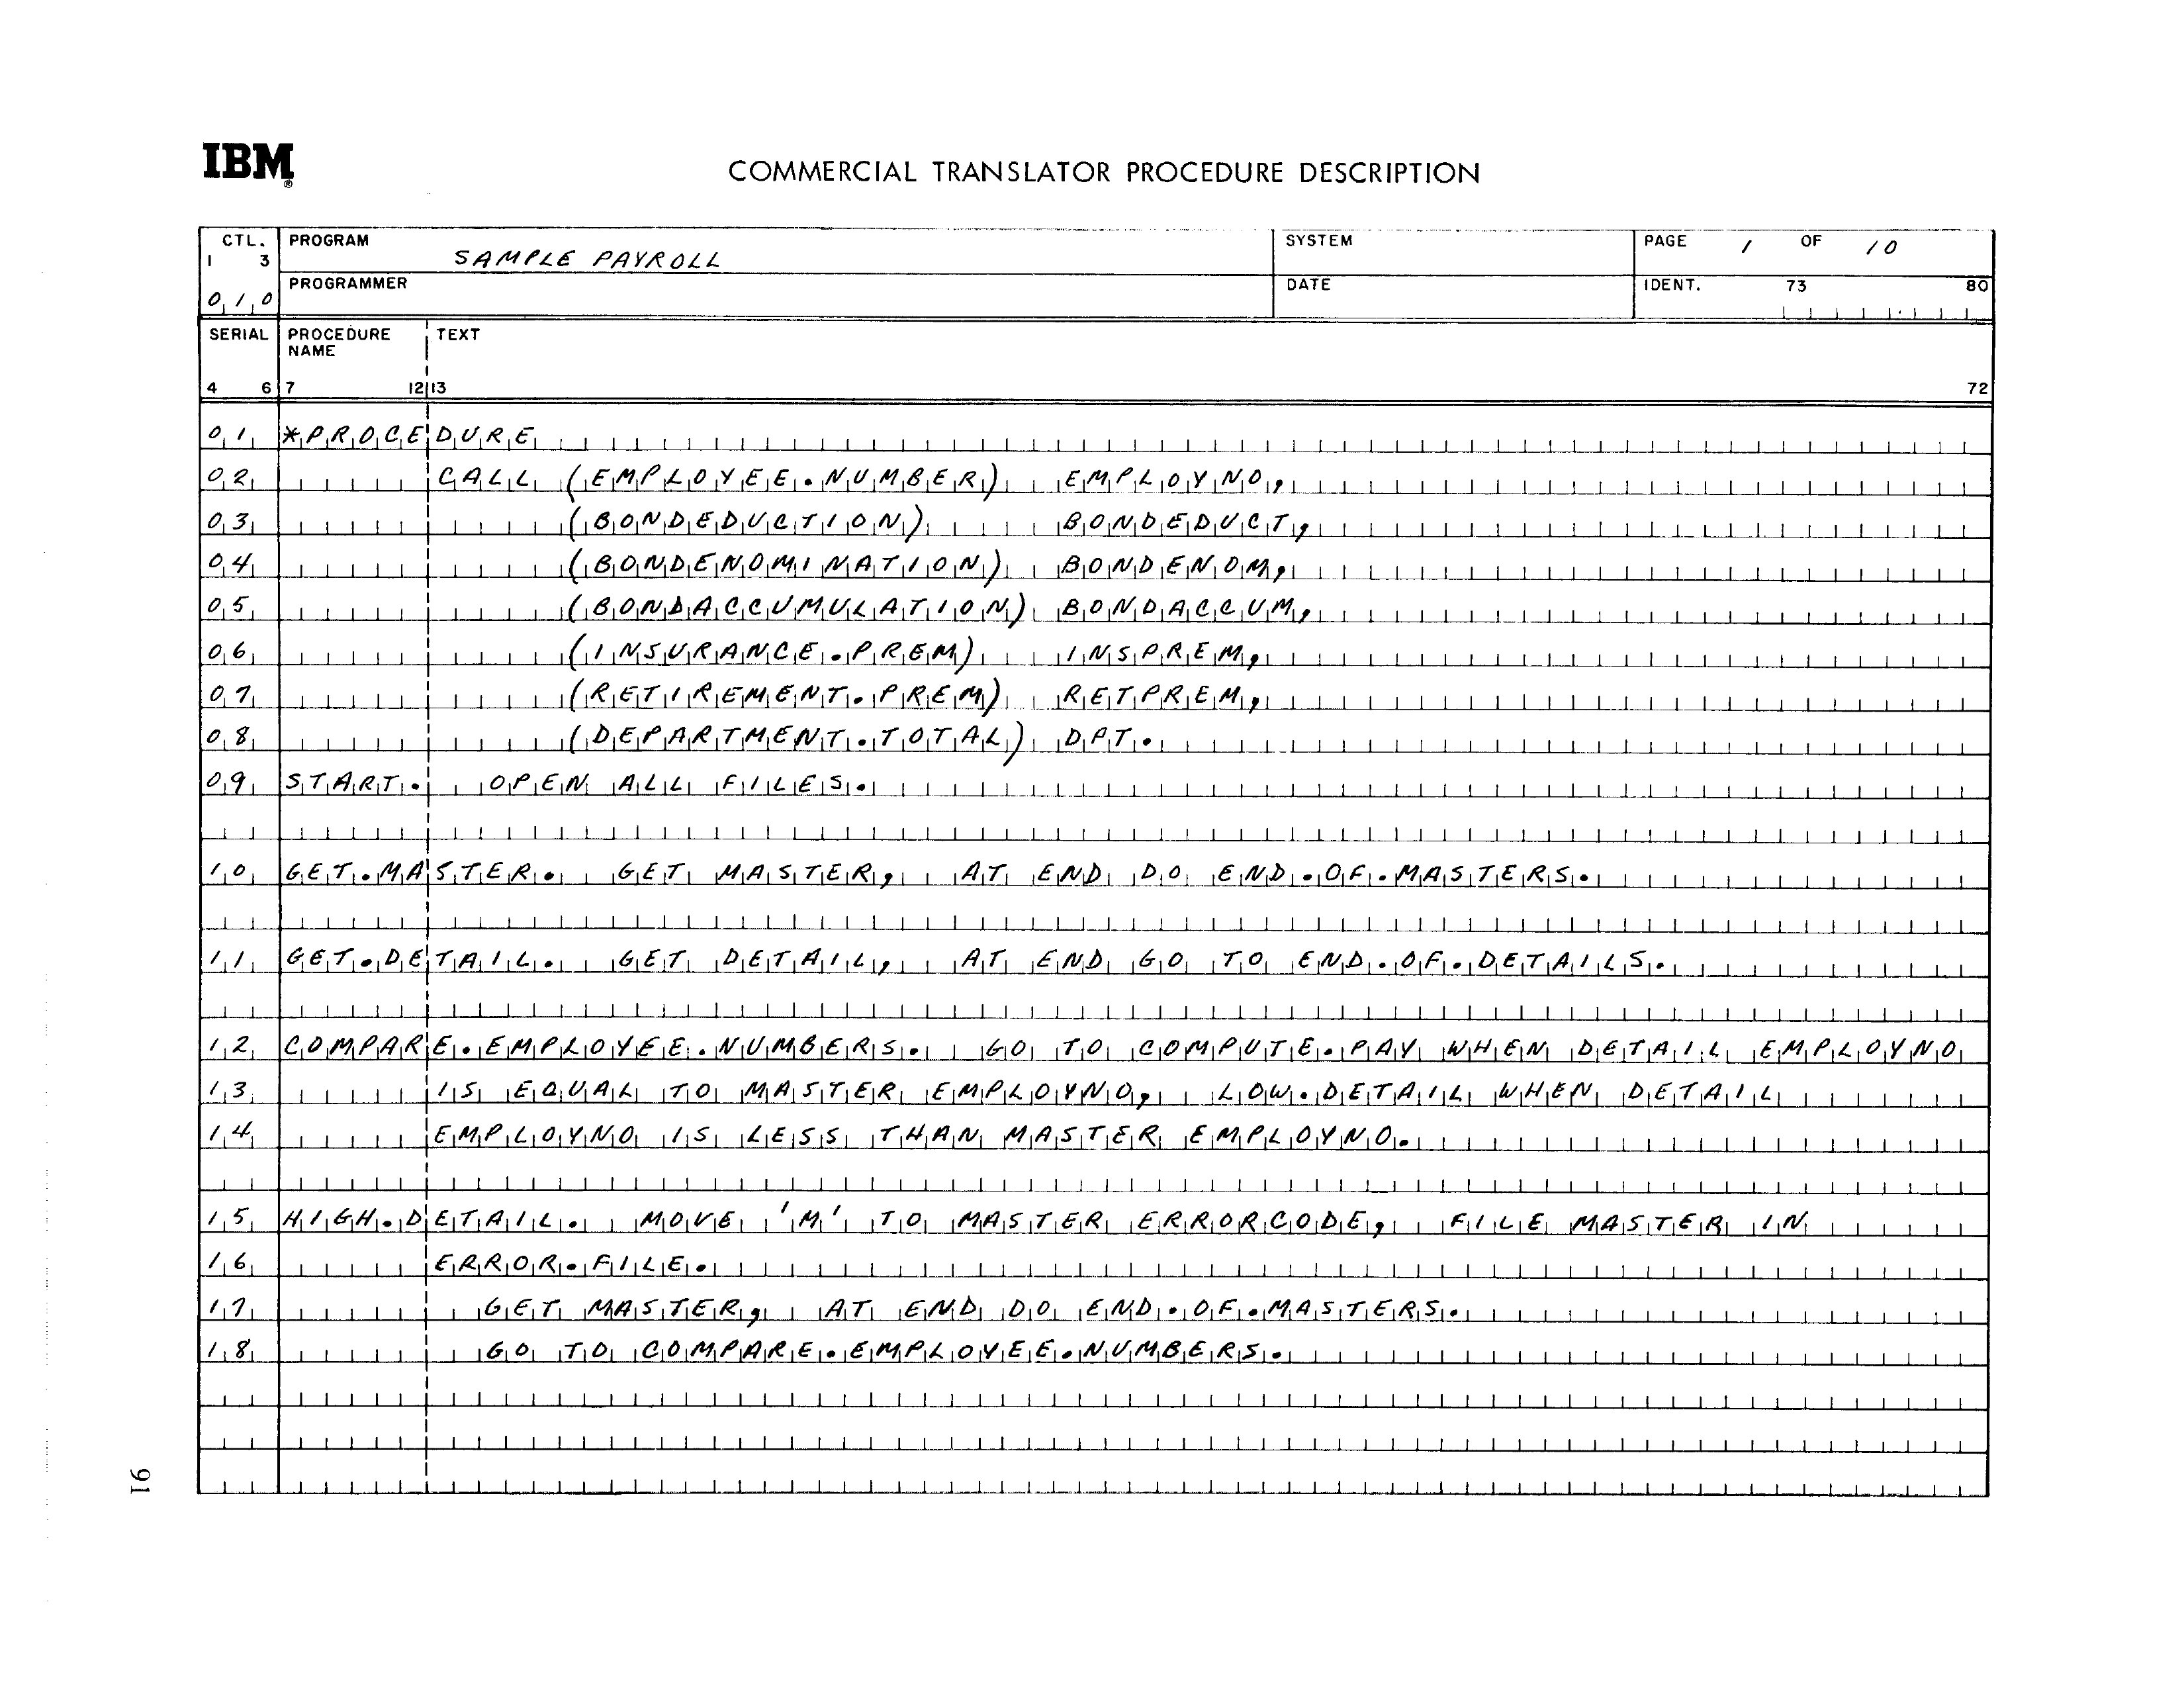 IBM®
COMMERCIAL TRANSLATOR PROCEDURE DESCRIPTION
CTL. PROGRAM SAMPLE PAYROLL SYSTEM PAGE 1 OF 10
1 3
010 PROGRAMMER DATE IDENT. 73 80
SERIAL PROCEDURE NAME TEXT
4 6 7 12 13 72
01 *PROCEDURE
02 CALL (EMPLOYEE.NUMBER) EMPLOYNO,
03 (BONDEDUCTION) BONDEDUCT,
04 (BONDENOMINATION) BONDENOM,
05 (BONDACCUMULATION) BONDACCUM,
06 (INSURANCE.PREM) INSPREM,
07 (RETIREMENT.PREM) RETPREM,
08 (DEPARTMENT.TOTAL) DPT.
09 START. OPEN ALL FILES.
10 GET.MASTER. GET MASTER, AT END DO END.OF.MASTERS.
11 GET.DETAIL. GET DETAIL, AT END GO TO END.OF.DETAILS.
12 COMPARE.EMPLOYEE.NUMBERS. GO TO COMPUTE.PAY WHEN DETAIL EMPLOYNO
13 IS EQUAL TO MASTER EMPLOYNO, LOW.DETAIL WHEN DETAIL
14 EMPLOYNO IS LESS THAN MASTER EMPLOYNO.
15 HIGH.DETAIL. MOVE 'M' TO MASTER ERRORCODE, FILE MASTER IN
16 ERROR.FILE.
17 GET MASTER, AT END DO END.OF.MASTERS.
18 GO TO COMPARE.EMPLOYEE.NUMBERS.
91